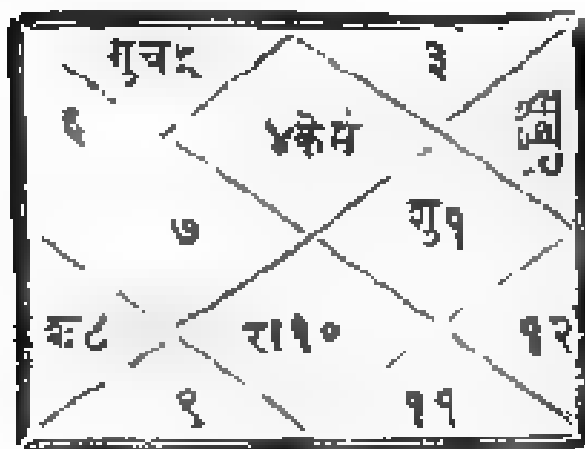 गुचं५
३
६
४केमं
७
शु१
श८
रा१०
१२
९
११